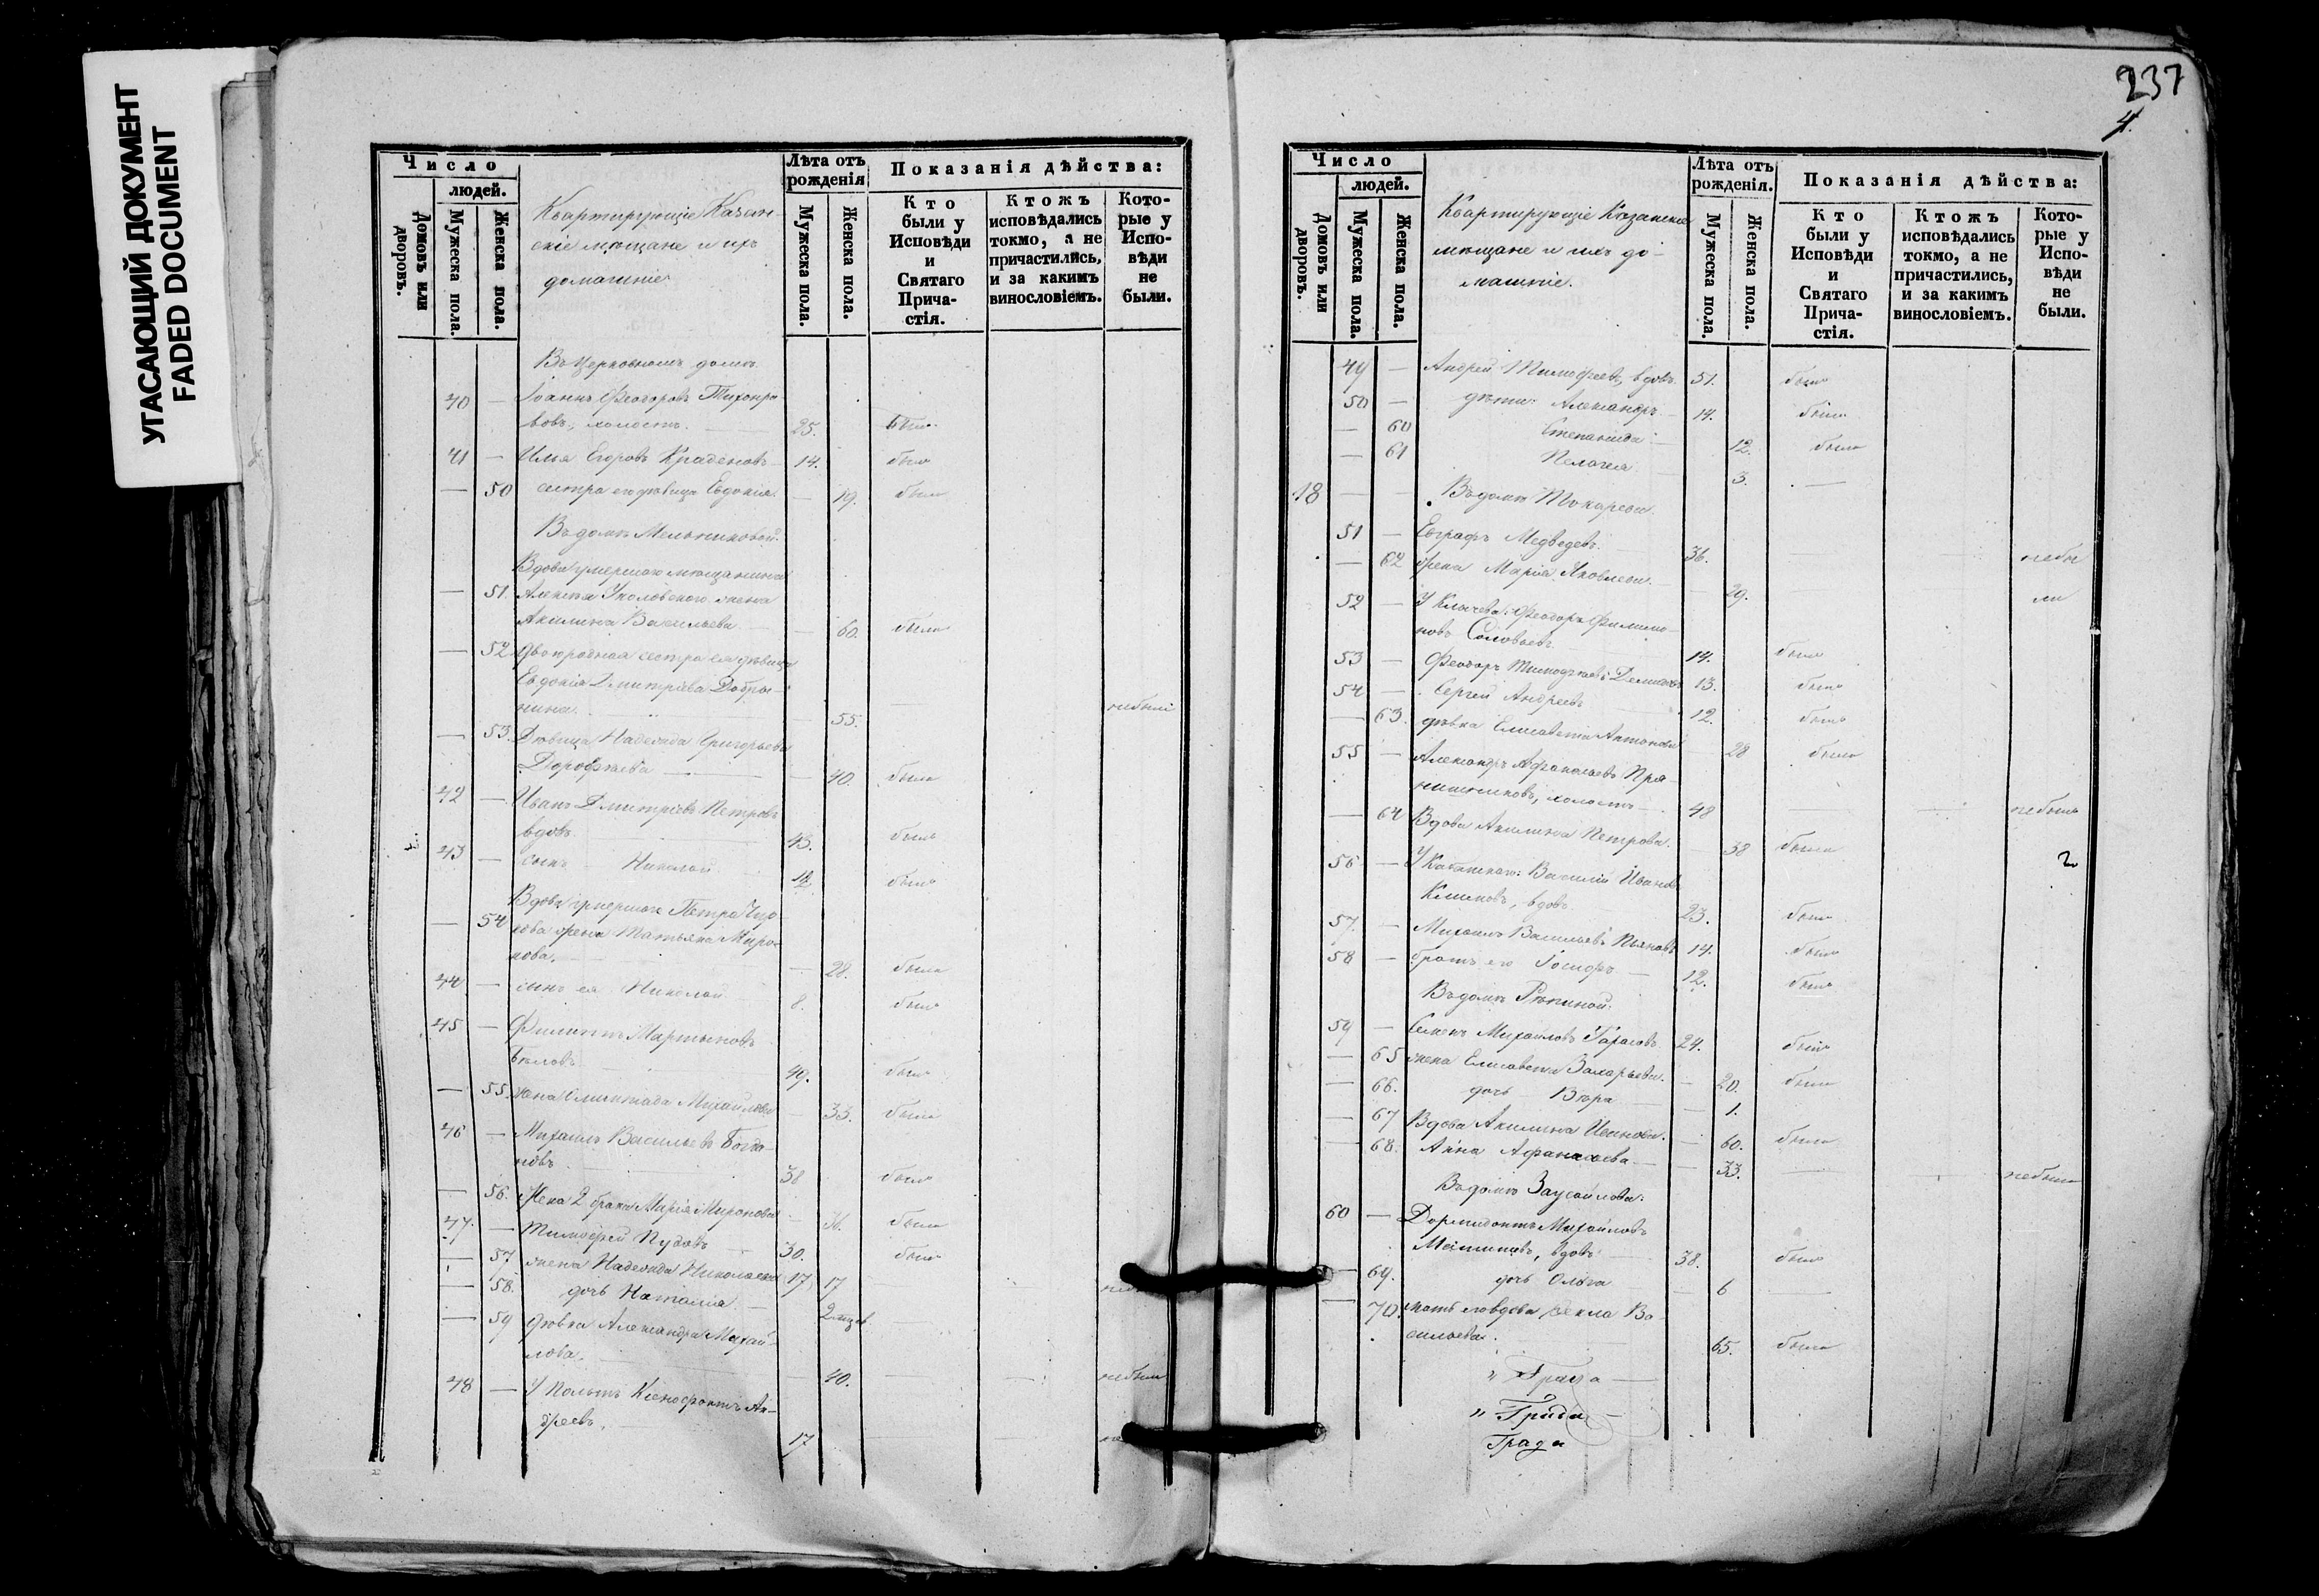 УГАСАЮЩИЙ ДОКУМЕНТ
FADED DOCUMENT
Число
людей.
Домовъ или дворовъ.
Мужеска пола.
Женска пола.
Квартирующіе Казан-
скіе мѣщане и ихъ
домашніе.
Лѣта отъ рожденія
Мужеска пола.
Женска пола.
Показанія дѣйства:
Кто были у Исповѣди и Святаго Прича-стія.
Ктожъ исповѣдались токмо, а не причастились, и за какимъ винословіемъ.
Кото-рые у Испо-вѣди не были.
Въ церковномъ домѣ
40 — Іоаннъ Феодоровъ Тихонра-
вовъ, холостъ. — 25. былъ
41 — Илья Егоровъ 14. былъ
— 50 сестра его дѣвица Евдокія. — 19. была
Въ домѣ Мельниковой.
Вдова умершаго мѣщанина
— 51. Алексѣя жена
Акилина Васильева — 60. была
— 52 Двоюродная сестра ея дѣвица
Евдокія Дмитріева Добры-
нина. — 55. не были
— 53. Дѣвица Надежда Григорьева
Дорофѣева — 40. была
42 — Иванъ Дмитріевъ Петровъ
вдовъ. 43. былъ
43 — сынъ Николай 12. былъ
Вдова умершаго Петра
— 54 жена Татьяна Миро-
нова. — 28. была
44 — сынъ ея Николай 8. былъ
45 — Филиппъ Мартыновъ
Бѣловъ 49. былъ
— 55. жена Олимпіада Михайлова — 33. была
46 — Михаилъ Васильевъ Богда-
новъ 38 былъ
— 56. Жена 2 брака Марія Миронова — была
47. — Тимофей 30. былъ
— 57 жена Надежда Николаева 17. 17
— 58. дочь Наталія. 2 мцев
— 59 дѣвка Александра Михай-
лова. — 40. не была
48 — У Ксенофонтъ Ан-
дреевъ. 17
237
4.
Число
людей.
Домовъ или дворовъ.
Мужеска пола.
Женска пола.
Квартирующіе Казанскіе
мѣщане и ихъ до-
машніе.
Лѣта отъ рожденія.
Мужеска пола.
Женска пола.
Показанія дѣйства:
Кто были у Исповѣди и Святаго Прича-стія.
Ктожъ исповѣдались токмо, а не причастились, и за какимъ винословіемъ.
Кото-рые у Испо-вѣди не были.
49 — Андрей Тимофеевъ, вдовъ. 51. былъ
50 — дѣти: Александръ 14. былъ
— 60 Степанида 12. была
— 61 Пелагея 3. —
18 — — Въ домѣ Токарева.
51 — Евграфъ Медведевъ. 36. не бы
— 62 жена Марія Яковлева. 29. ли
52 — У Клычева: Феодоръ Филимо-
новъ Соловьевъ. 14. былъ
53 — Феодоръ Тимофѣевъ 13. былъ
54 — Сергей Андреевъ 12. былъ
— 63. дѣвка Елисавета Антонова 28 была
55 — Александръ Афанасьевъ Пря-
нишниковъ, холостъ 48 не былъ
— 64 Вдова Акилина Петрова. — 38 была
56 — У Василій Ивановъ
Климовъ, вдовъ 23. былъ
57. — Михаилъ Васильевъ 14. былъ
58 — братъ его 12. былъ
Въ домѣ Рѣпиной.
59 — Семенъ Михайловъ Тарасовъ 24. былъ
— 65 жена Елисавета Захарьева. — 20. была
— 66. дочь Вѣра — 1.
— 67 Вдова Акилина Иванова. — 60. была
— 68. Анна Афанасьева — 33. не была
Въ домѣ Заусайлова.
60 — Дормидонтъ Михайловъ
вдовъ 38. былъ
— 69. дочь Ольга — 6 —
— 70. мать его вдова Фекла Ва-
сильева. 65. была